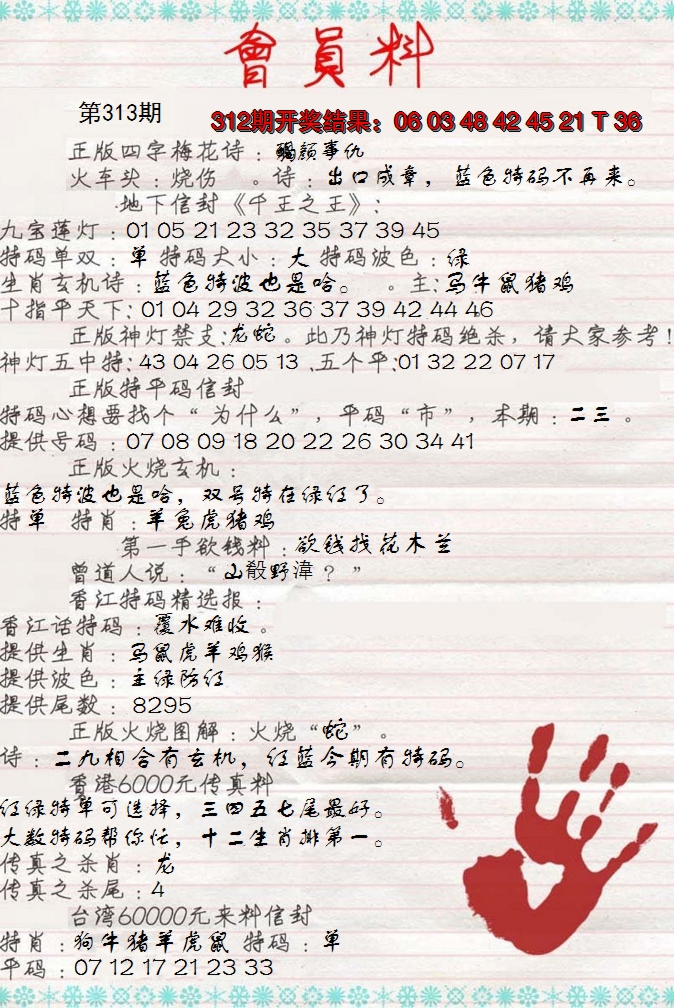 會員料
第313期
312期开奖结果：06 03 48 42 45 21 T 36
正版四字梅花诗：颜事仇
火车头：烧伤 。诗：出口成章，蓝色特码不再来。
地下信封《千王之王》：
九宝莲灯：01 05 21 23 32 35 37 39 45
特码单双：单 特码大小：大 特码波色：绿
生肖玄机诗：蓝色特波也是哈。 。主：马牛鼠猪鸡
十指平天下：01 04 29 32 36 37 39 42 44 46
正版神灯禁支：龙蛇。此乃神灯特码绝杀，请大家参考！
神灯五中特：43 04 26 05 13 .五个平：01 32 22 07 17
正版特平码信封
特码心想要找个“为什么”，平码“市”，本期：二三 。
提供号码：07 08 09 18 20 22 26 30 34 41
正版火烧玄机：
蓝色特波也是哈，双号特在绿红了。
特单 特肖：羊兔虎猪鸡
第一手欲钱料：欲钱找花木兰
曾道人说：“山骰野湋？”
香江特码精选报：
香江话特码：覆水难收。
提供生肖：马鼠虎羊鸡猴
提供波色：主绿防红
提供尾数：8295
正版火烧图解：火烧“蛇”。
诗：二九相合有玄机，红蓝今期有特码。
香港6000元传真料
红绿特单可选择，三四五七尾最好。
大数特码帮你忙，十二生肖排第一。
传真之杀肖：龙
传真之杀尾：4
台湾60000元来料信封
特肖：狗牛猪羊虎鼠 特码：单
平码：07 12 17 21 23 33